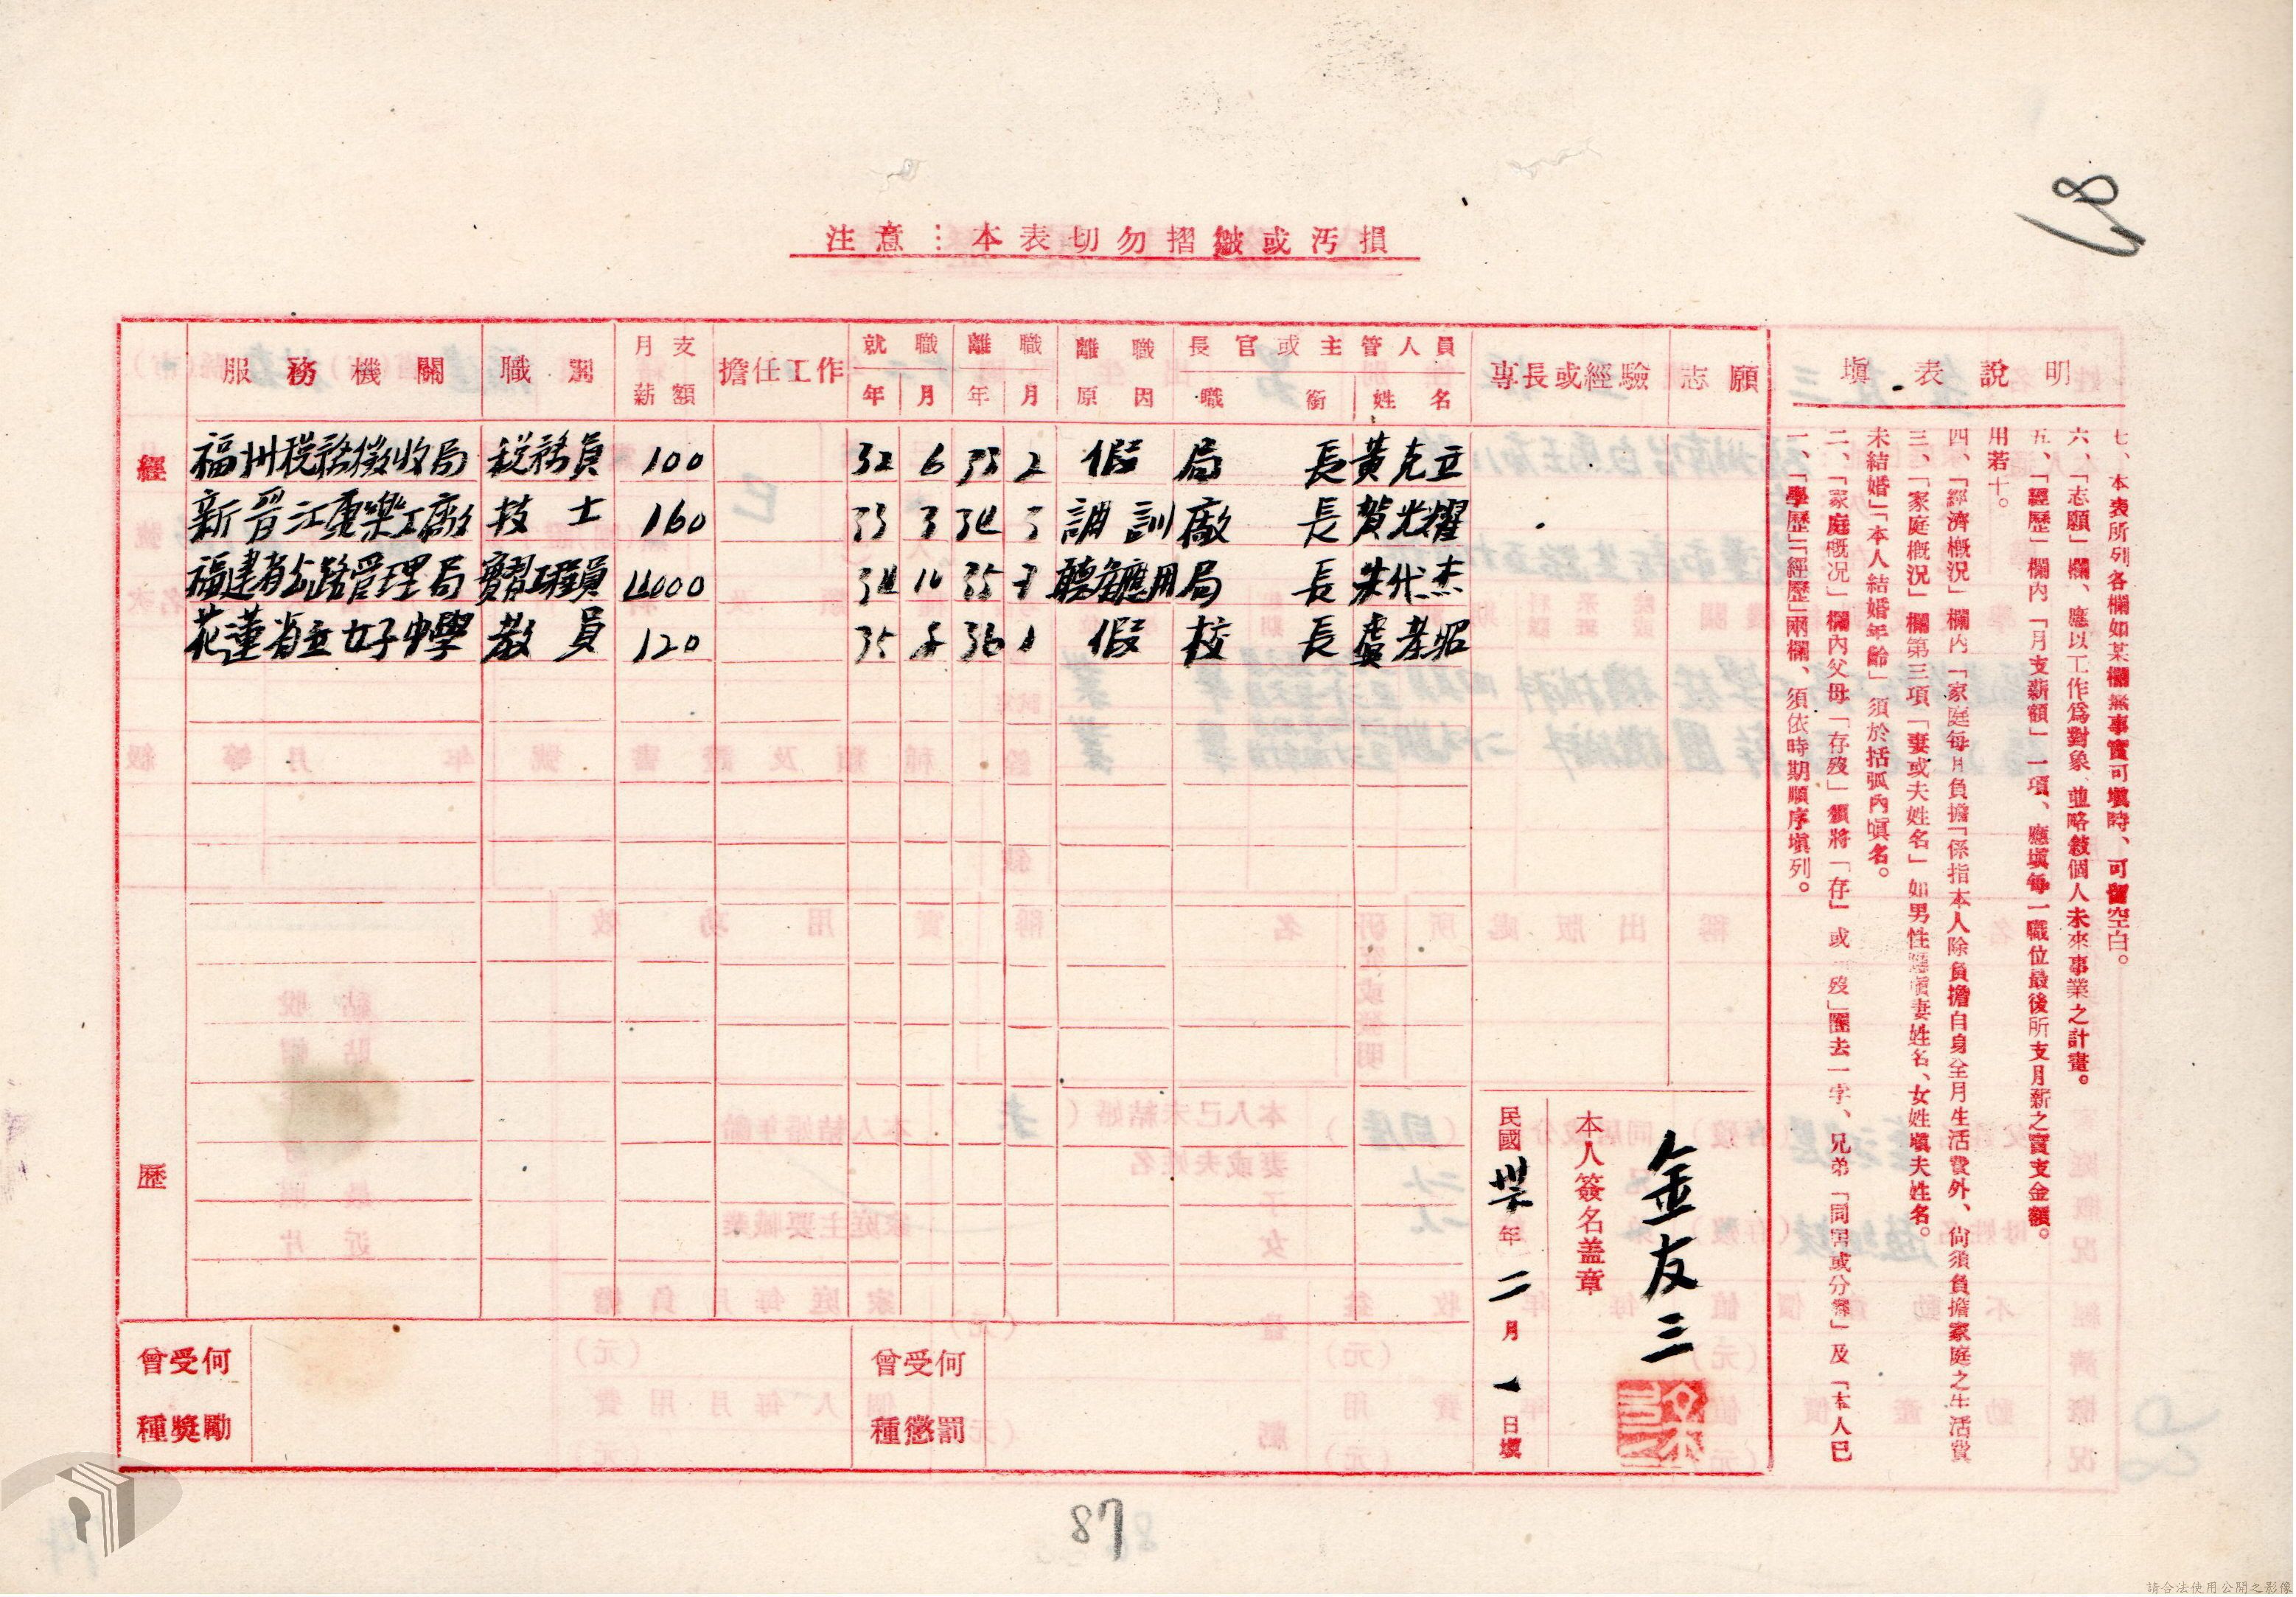 18
注意：本表切勿摺皺或汚損
服務機關 職別 月支薪額 擔任工作 就職年月 離職年月 離職原因 長官或主管人員職銜姓名 專長或經驗 志願
經歷
福州稅務徵收局 稅務員 100 32 6 33 2 假 局長 黃克立
新晉江電樂工廠 技士 160 33 3 34 3 調訓 廠長 賀光耀
福建省公路管理局 實習工程員 4000 34 10 35 局長 朱代杰
花蓮省立女子中學 教員 120 35 36 1 假 校長
曾受何種獎勵
曾受何種懲罰
本人簽名蓋章 金友三
民國 卅六 年 二 月 一 日塡
塡表說明
一、「學歷」「經歷」兩欄、須依時期順序塡列。
二、「家庭概況」欄內父母「存歿」須將「存」或「歿」圈去一字、兄弟「同居或分爨」及「本人已
未結婚」「本人結婚年齡」須於括弧內塡名。
三、「家庭概況」欄第三項「妻或夫姓名」如男性應塡妻姓名、女姓塡夫姓名。
四、「經濟概況」欄內「家庭每月負擔「係指本人除負擔自身全月生活費外、尙須負擔家庭之生活費
用若干。
五、「經歷」欄內「月支薪額」一項、應塡每一職位最後所支月薪之實支金額。
六、「志願」欄、應以工作爲對象、並略敍個人未來事業之計畫。
七、本表所列各欄如某欄無事實可塡時、可留空白。
87
請合法使用公開之影像